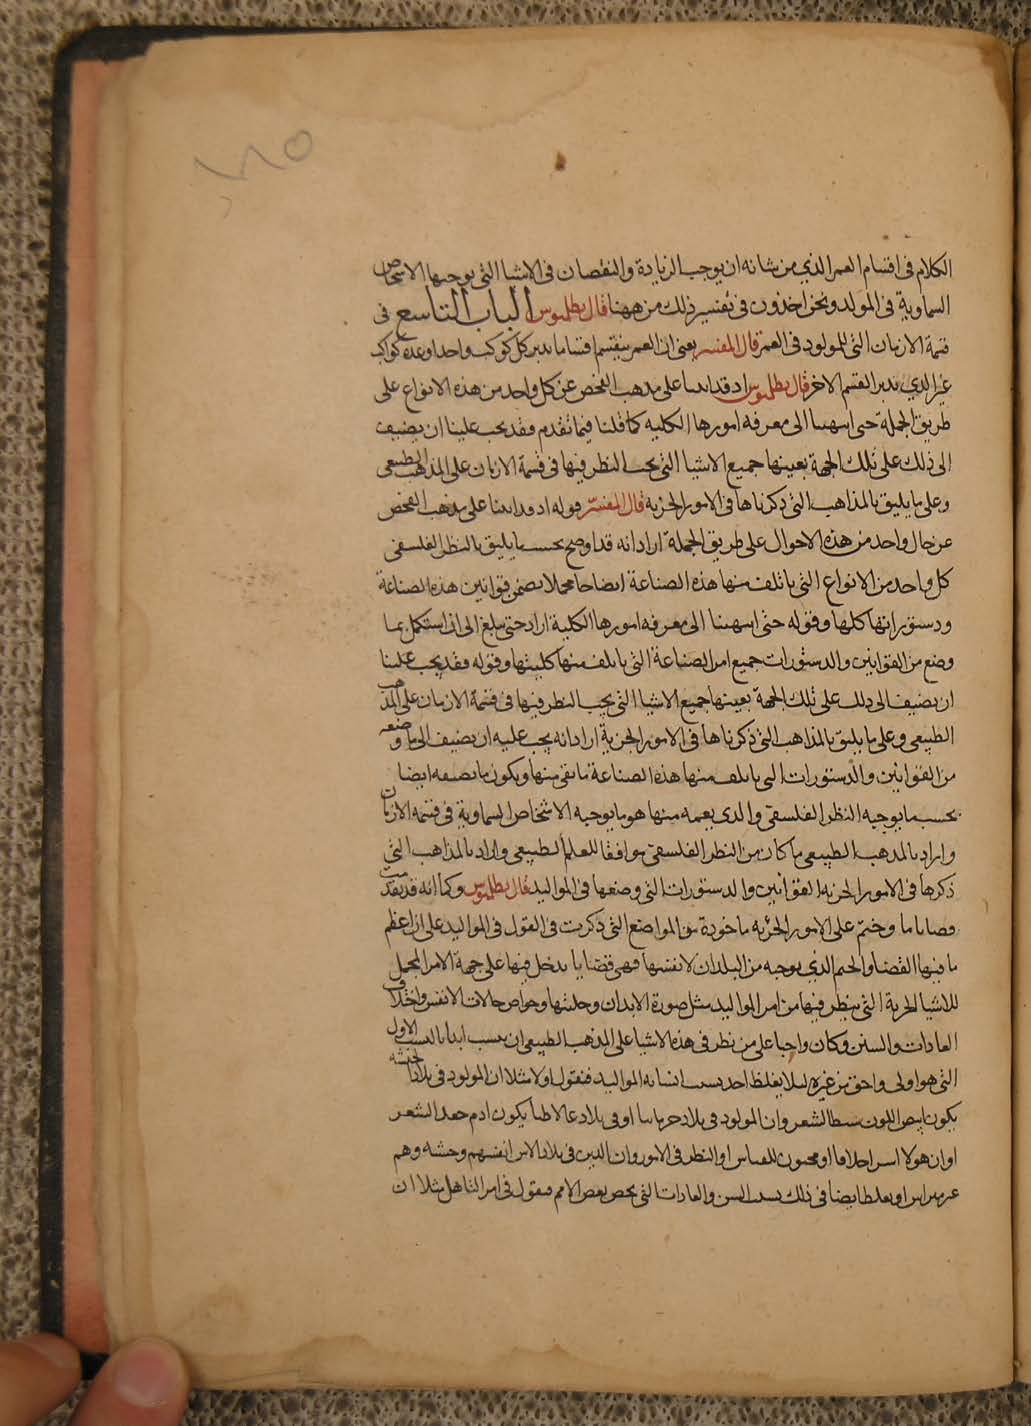 الكلام فى اقسام العمر الذي من شانه ان يوجب الزيادة والنقصان فى الاشيا التى يوجبها الاشخاص
السماوية فى المولد ونحن اخذون فى تفسير ذلك من ههنا قال بطلميوس الباب التاسع فى
قسمة الازمان التى للمولود فى العمر قال المفسر يعنى ان العمر ينقسم اقساما يدبر كل كوكب واحد او عدة كواكب
غير الذي يدبر القسم الاخر قال بطلميوس اذ قد اتينا على مذهب الفحص عن كل واحد من هذه الانواع على
طريق الجملة حتى انتهينا الى معرفة امورها الكلية كما قلنا فيما تقدم فقد يجب علينا ان يضيف
الى ذلك على تلك الجهة بعينها جميع الاشيا التى يجب النظر فيها فى قسمة الازمان على المذهب الطبيعى
وعلى ما يليق بالمذاهب التى ذكرناها فى الامور الجزية قال المفسر قوله اذ قد اتينا على مذهب الفحص
عن حال واحد من هذه الاحوال على طريق الجملة اراد انه قد اوضح بحسب ما يليق بالنظر الفلسفى
كل واحد من الانواع التى ياتلف منها هذه الصناعة ايضاحا مجملا يضمن قوانين هذه الصناعة
ودستوراتها كلها وقوله حتى انتهينا الى معرفة امورها الكلية اراد حتى بلغ الى ان استكمل بما
وضع من القوانين والدستورات جميع امر الصناعة التى ياتلف منها كليتها وقوله فقد يجب علينا
ان يضيف الى ذلك على تلك الجهة بعينها جميع الاشيا التى يجب النظر فيها فى قسمة الازمان على المذهب
الطبيعى وعلى ما يليق بالمذاهب التى ذكرناها فى الامور الجزية اراد انه يجب عليه ان يضيف الى ما وضعه
من القوانين والدستورات التى ياتلف منها هذه الصناعة ما بقى منها ويكون ما يضيفه ايضا
بحسب ما يوجبه النظر الفلسفى والذى يعمه منها هو ما يوجبه الاشخاص السماوية فى قسمة الازمان
واراد بالمذهب الطبيعى ما كان من النظر الفلسفى موافقا للعلم الطبيعى واراد بالمذاهب التى
ذكرها فى الامور الجزية القوانين والدستورات التى وضعها فى المواليد قال بطلميوس وكما انه قد تقدمت
قضايا ما وختم على الامور الجزئية ماخوذة من المواضع التى ذكرت فى القول فى المواليد على ان اعظم
ما فيها القضا والحتم الذي يوجبه من البلدان لا نفسها فهى قضايا يدخل فيها على جهة الامر المجمل
للاشيا الجزية التى ينظر فيها من امر المواليد مثل صورة الابدان وحليتها وخواص حالات الانفس واختلاف
العادات والسنن وكان واجبا على من نظر فى هذه الاشيا على المذهب الطبيعى ان ينسب ابدا بالسبب الاول
التى هو اولى واحق من غيره ليلا يغلظ احد بسبب اشباه المواليد فنقول اولا مثلا ان المولود فى بلاد الحبشه
يكون ابيض اللون سبط الشعر وان المولود فى بلاد جرمانيا او فى بلاد غالاطيا يكون ادم جعد الشعر
او ان هولا اخلاقا او محبون للقياس او النظر فى الامور وان الذين فى بلاد انفسهم وحشه وهم
او يغلط ايضا فى ذلك بسبب السنن والعادات التى يخص بعض الامم فيقول فى امر التاهل مثلا ان